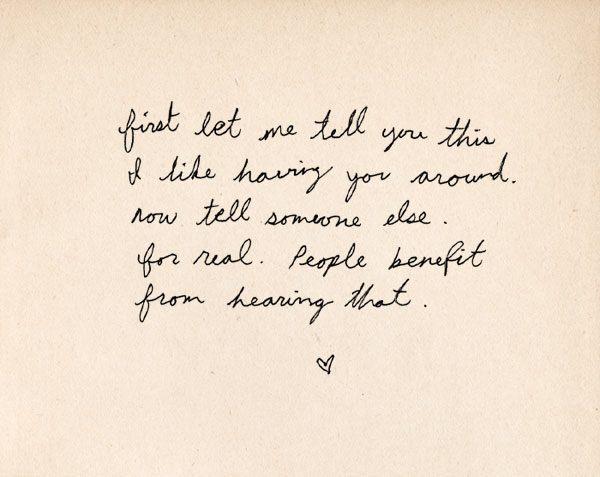 first let me tell you this
I like having you around.
now tell someone else.
for real. People benefit
from hearing that.